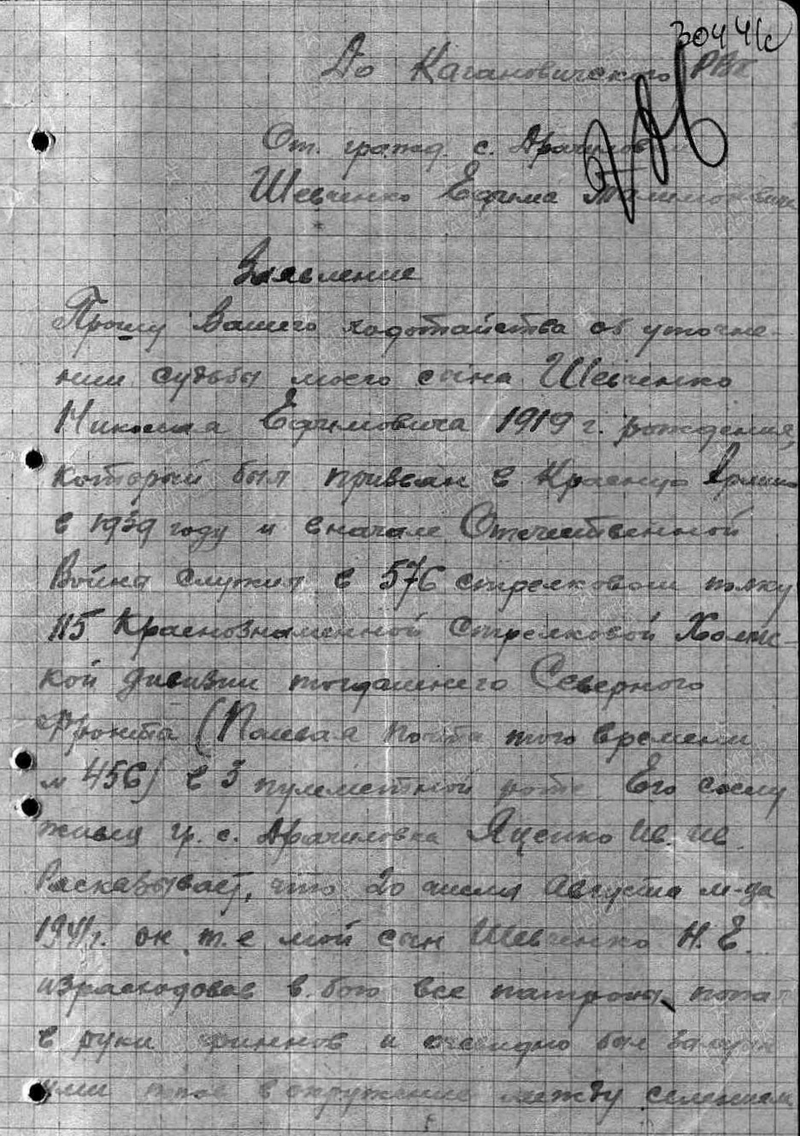 30441с
До Кагановичского РВК
От. гражд. с. Драчиловки
Шевченко Ефима
Заявление
Прошу Вашего ходотайства об уточне-
нии судьбы моего сына Шевченко
Николая Ефимовича 1919 г. рождения,
который был призван в Красную Армию
в 1939 году и вначале Отечественной
Войны служил в 576 стрелковом полку
115 Краснознаменной Стрелковой Холмс-
кой дивизии тогдашнего Северного
Фронта (Полевая почта того времени
№ 456) в 3 пулеметной роте. Его сослу
живец гр. с. Драчиловка Яценко Ив. Ив.
Расказывает, что 20 числа Августа м-ца
1941г. он т.е мой сын Шевченко Н.Е.
израсходовав в бою все патроны попал
в руки финнов и очевидно был
ими в окружение между селением